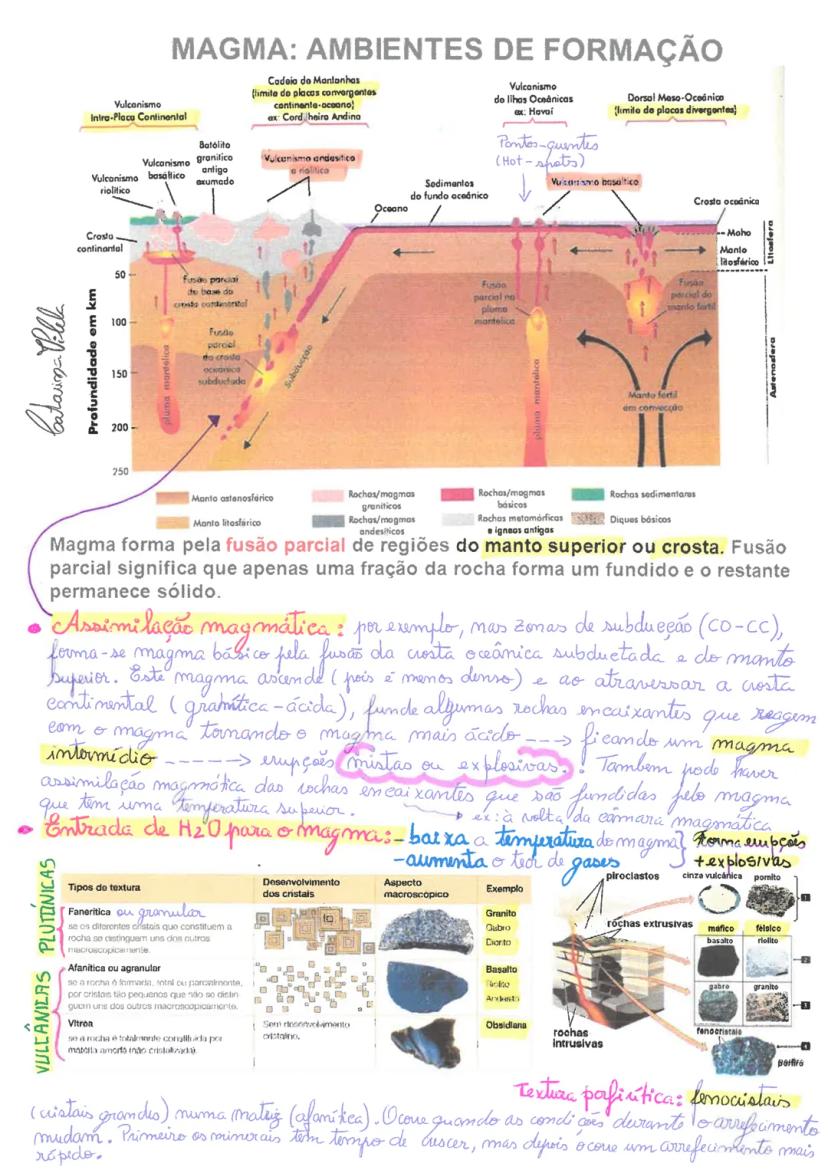 MAGMA: AMBIENTES DE FORMAÇÃO
Vulcanismo
Intra-Placa Continental
Cadeia de Montanhas
(limite de placas convergentes
continente-oceano)
ex: Cordilheira Andina
Vulcanismo
de Ilhas Oceânicas
ex: Havaí
Dorsal Meso-Oceânica
(limite de placas divergentes)
Pontos-quentes
(Hot-spots)
Vulcanismo
riolítico
Vulcanismo
basáltico
Batólito
granítico
antigo
exumado
Vulcanismo andesítico
e riolítico
Oceano
Sedimentos
do fundo oceânico
Vulcanismo basáltico
Crosta oceânica
Moho
Manto
litosférico
Litosfera
Astenosfera
Crosta
continental
Profundidade em km
50
100
150
200
250
Fusão parcial
da base da
crosta continental
Fusão
parcial
da crosta
oceânica
subductada
Subducção
pluma mantélica
Fusão
parcial na
pluma
mantélica
pluma mantélica
Fusão
parcial do
manto fértil
Manto fértil
em convecção
Catarina Vilela
Manto astenosférico
Manto litosférico
Rochas/magmas
graníticos
Rochas/magmas
andesíticos
Rochas/magmas
básicos
Rochas metamórficas
e ígneas antigas
Rochas sedimentares
Diques básicos
Magma forma pela fusão parcial de regiões do manto superior ou crosta. Fusão
parcial significa que apenas uma fração da rocha forma um fundido e o restante
permanece sólido.
• Assimilação magmática: por exemplo, nas zonas de subducção (CO-CC),
forma-se magma básico pela fusão da crosta oceânica subductada e do manto
superior. Este magma ascende (pois é menos denso) e ao atravessar a crosta
continental (granítica-ácida), funde algumas rochas encaixantes que reagem
com o magma tornando o magma mais ácido ---> ficando um magma
intermédio -----> erupções mistas ou explosivas. Também pode haver
assimilação magmática das rochas encaixantes que são fundidas pelo magma
que tem uma temperatura superior.
ex: à volta da câmara magmática
• Entrada de H2O para o magma: - baixa a temperatura do magma
- aumenta o teor de gases
Torna erupções
+ explosivas
PLUTÓNICAS
VULCÂNICAS
Tipos de textura
Desenvolvimento
dos cristais
Aspecto
macroscópico
Exemplo
Fanerítica ou granular
se os diferentes cristais que constituem a
rocha se distinguem uns dos outros
macroscopicamente.
Granito
Gabro
Diorito
Afanítica ou agranular
se a rocha é formada, total ou parcialmente,
por cristais tão pequenos que não se distin-
guem uns dos outros macroscopicamente.
Basalto
Riolito
Andesito
Vítrea
se a rocha é totalmente constituída por
matéria amorfa (não cristalizada).
Sem desenvolvimento
cristalino.
Obsidiana
piroclastos
rochas extrusivas
rochas
intrusivas
cinza vulcânica
pomito
1
máfico
félsico
basalto
riolito
2
gabro
granito
3
fenocristais
4
pórfiro
Textura porfirítica: fenocristais
(cristais grandes) numa matriz (afanítica). Ocorre quando as condições durante o arrefecimento
mudam. Primeiro os minerais têm tempo de crescer, mas depois ocorre um arrefecimento mais
rápido.